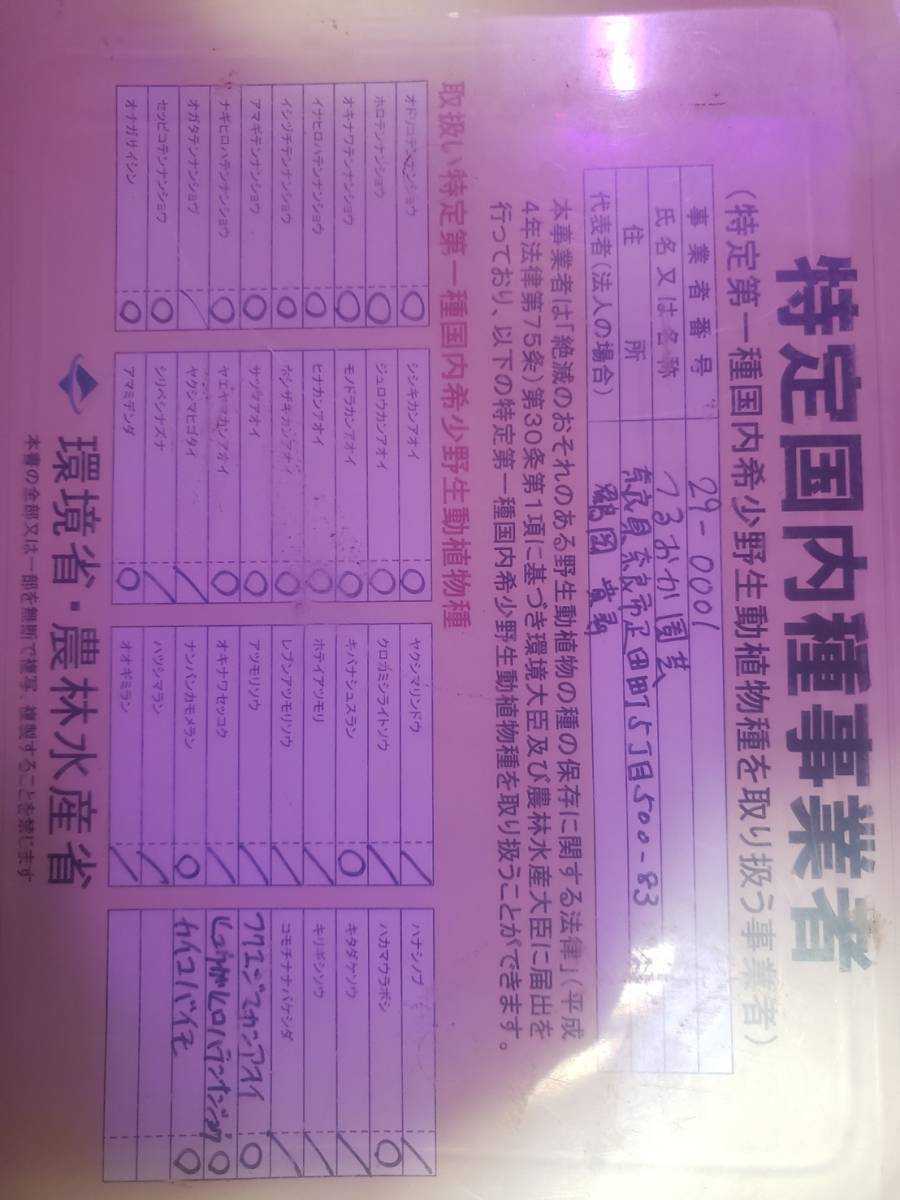 特定国内種事業者
(特定第一種国内希少野生動植物種を取り扱う事業者)
事業者番号 29-0001
氏名又は名称 つるおか園芸
住所 奈良県奈良市疋田町5丁目500-83
代表者(法人の場合) 鶴岡
本事業者は「絶滅のおそれのある野生動植物の種の保存に関する法律」(平成
4年法律第75条)第30条第1項に基づき環境大臣及び農林水産大臣に届出を
行っており、以下の特定第一種国内希少野生動植物種を取り扱うことができます。
取扱い特定第一種国内希少野生動植物種
オドリコテンナンショウ ○
ホロテンナンショウ ○
オキナワテンナンショウ ○
イナヒロハテンナンショウ ○
イシヅチテンナンショウ ○
アマギテンナンショウ ○
ナギヒロハテンナンショウ ○
オガタテンナンショウ /
セッピコテンナンショウ ○
オナガサイシン ○
シシキカンアオイ ○
ジュロウカンアオイ ○
モノドラカンアオイ ○
ヒナカンアオイ ○
ナンゴクアオイ ○
サツマアオイ ○
ヤエヤマカンアオイ ○
ヤクシマヒゴタイ /
シリベシナズナ /
アマミデンダ ○
ヤクシマリンドウ /
クロカミシライトソウ /
キバナシュスラン ○
ホテイアツモリ /
レブンアツモリソウ /
アツモリソウ /
オキナワセッコク /
ナンバンカモメラン ○
ハツシマラン /
オオギミラン /
ハナシノブ /
ハカマウラボシ ○
キタダケソウ /
キリギシソウ /
コモチナナバケシダ /
フクエジマカンアオイ ○
ヒュウガヒロハテンナンショウ ○
カイコバイモ ○
環境省・農林水産省
本書の全部又は一部を無断で複写、複製することを禁じます